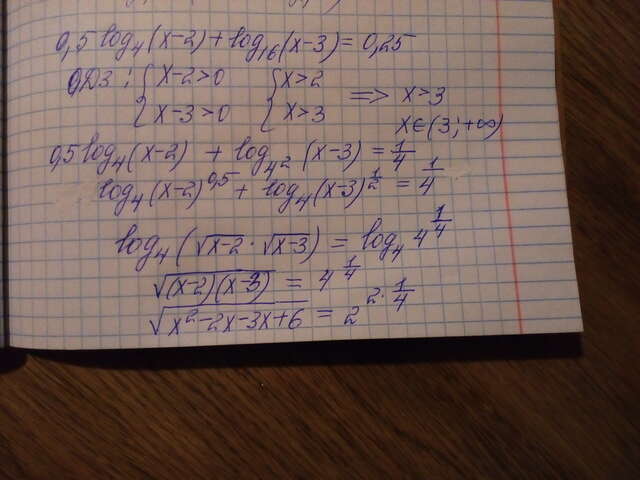 0,5 log₄(x-2) + log₁₆(x-3) = 0,25
ОДЗ: { x-2>0 { x>2 => x>3
{ x-3>0 { x>3 x∈(3;+∞)
0,5 log₄(x-2) + log₄² (x-3) = 1/4
log₄(x-2)^0,5 + log₄(x-3)^1/2 = 1/4
log₄(√x-2 · √x-3) = log₄ 4^1/4
√(x-2)(x-3) = 4^1/4
√x²-2x-3x+6 = 2^2·1/4